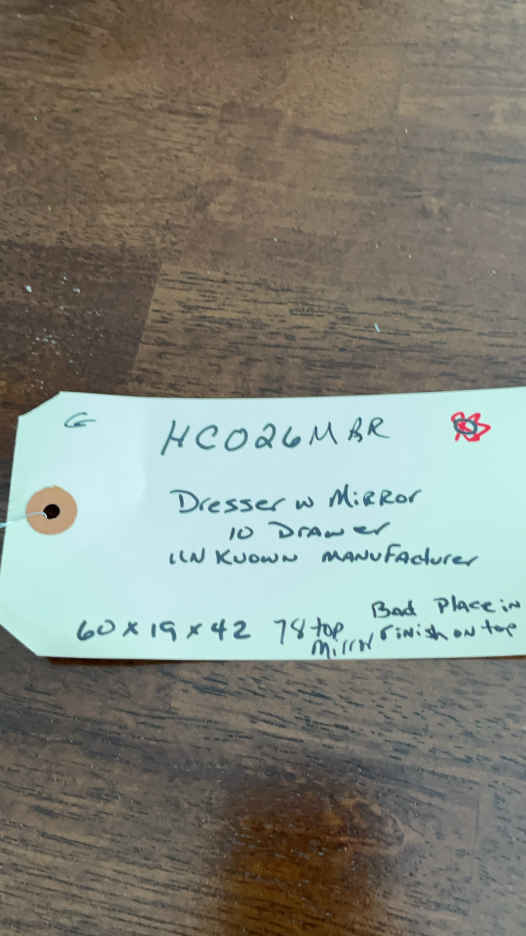 G
HC026MBR
Dresser w Mirror
10 Drawer
UNKNOWN MANUFActurer
Bad Place in
60 x 19 x 42 78 top finish on top
Mirror